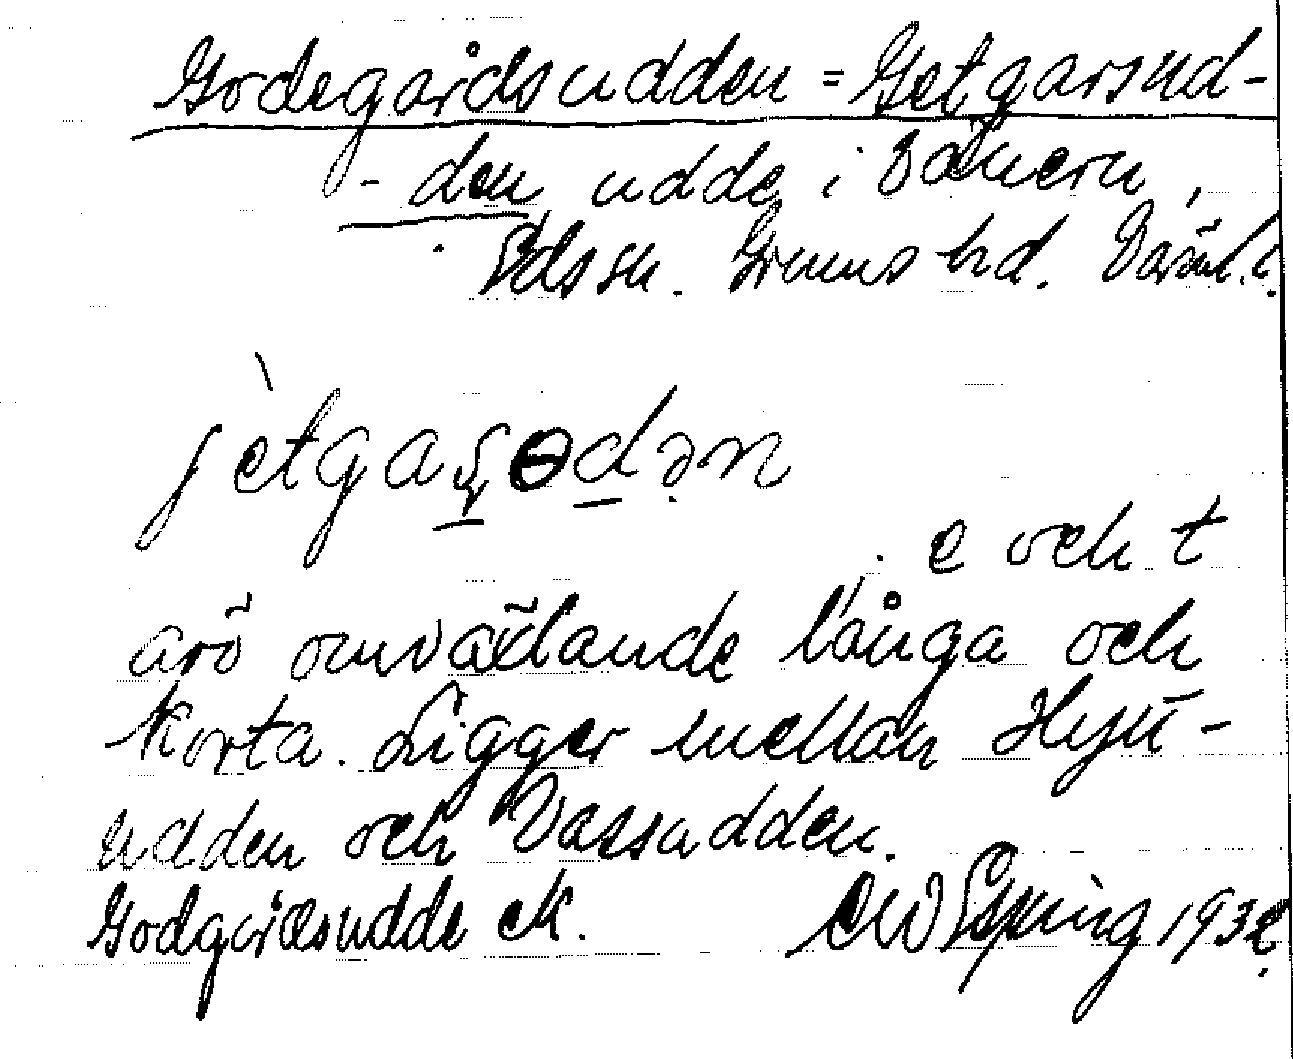 Godegårdsudden = Getgarsud-
- den, udde i Vänern,
Eds sn. Grums hd. Värml.l.
jètgaʂɵdən
e och t
äro omväxlande långa och
korta. Ligger mellan Hyn-
udden och Vassudden.
Godgårdsudde ek. CW Spring 1932.